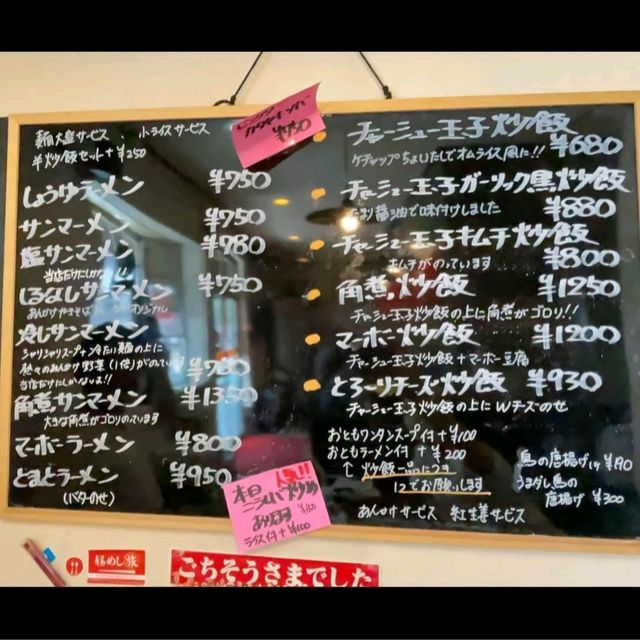 麺大盛サービス 小ライスサービス
半炒飯セット+¥250
しょうゆラーメン ¥750
サンマーメン ¥750
塩サンマーメン ¥780
当店だけにしかない!!
しるなしサンマーメン ¥750
あんかけやきそば オリジナル
冷しサンマーメン
シャリシャリスープ+冷たい麺の上に
熱々のあんかけ野菜(1倍)がのっています ¥780
当店だけにしかないよ!!
角煮サンマーメン ¥1350
大きな角煮がゴロリのっています
マーボーラーメン ¥800
とまとラーメン ¥950
(バターのせ)
¥750
チャーシュー玉子炒飯 ¥680
ケチャップちょいたしでオムライス風に!!
チャーシュー玉子ガーリック黒炒飯 ¥880
醤油で味付けしました
チャーシュー玉子キムチ炒飯 ¥800
キムチがのっています
角煮炒飯 ¥1250
チャーシュー玉子炒飯の上に角煮がゴロリ!!
マーボー炒飯 ¥1200
チャーシュー玉子炒飯+マーボー豆腐
とろーりチーズ炒飯 ¥930
チャーシュー玉子炒飯の上にWチーズのせ
おともワンタンスープ付+¥100
おともラーメン付+¥200
↑炒飯一品につき
1コでお願いします
あんかけサービス 紅生姜サービス
鳥の唐揚げ1ヶ¥190
うまダレ鳥の
唐揚げ¥300
人気!!
本日
ニラレバ炒め
あります
ライス付+¥100
昼めし旅
ごちそうさまでした